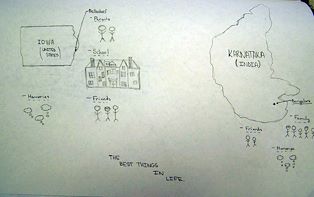 IOWA
(UNITED
STATES)
- School
- Memories
- Friends
KARNATAKA
(INDIA)
- Family
- Friends
THE
BEST THINGS
IN
LIFE